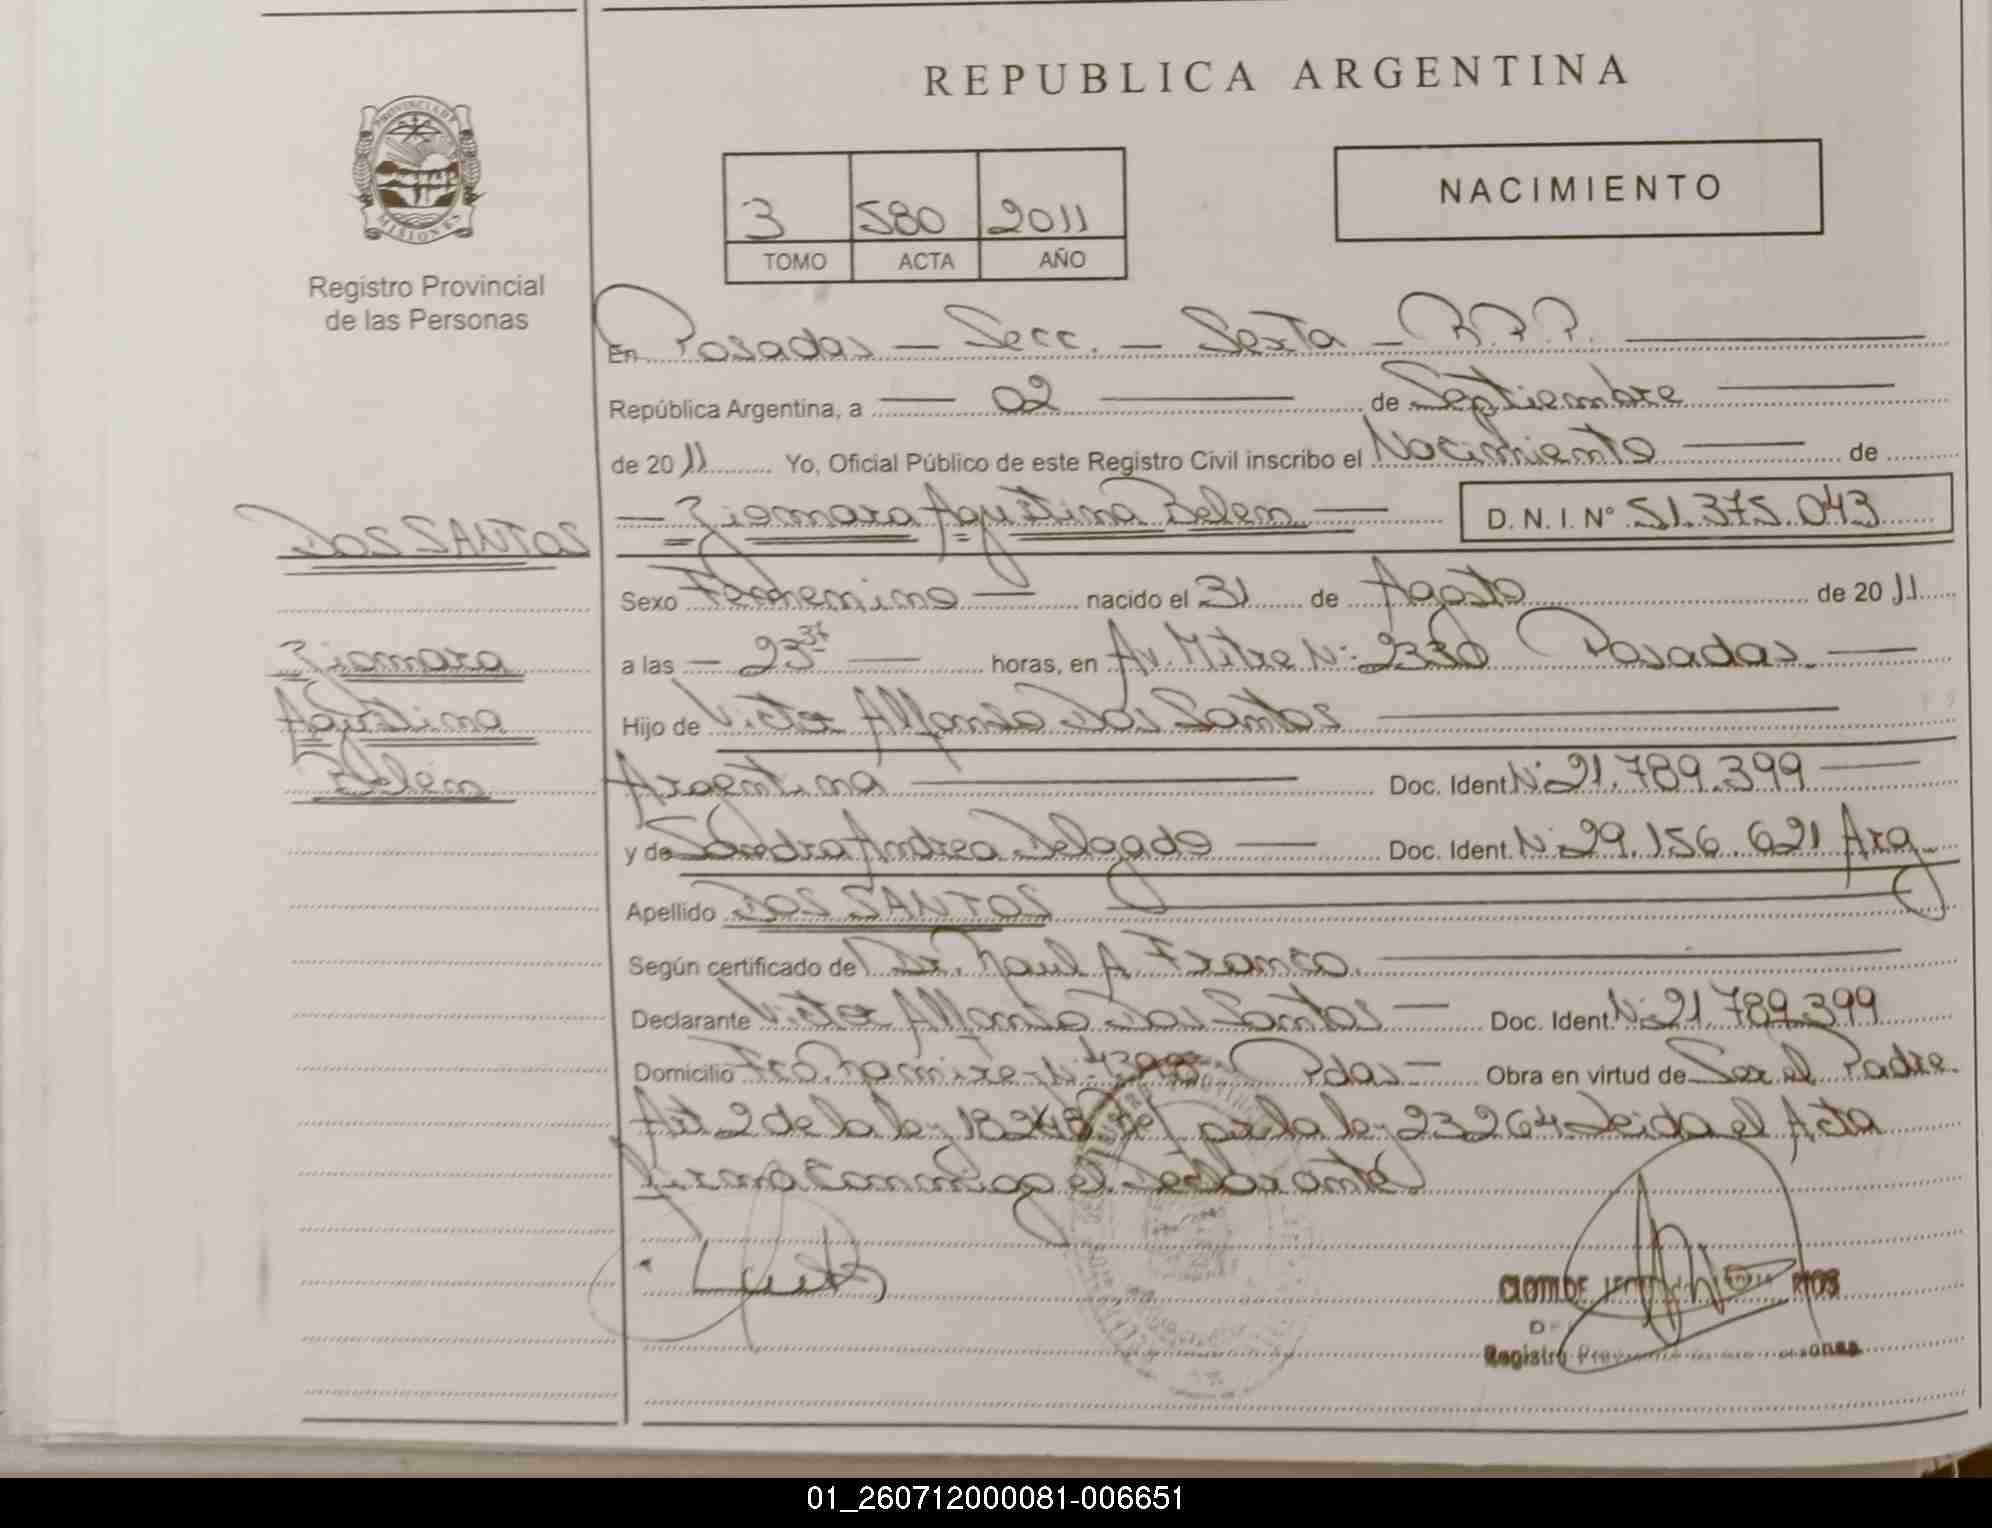 REPUBLICA ARGENTINA
PROVINCIA DE
MISIONES
Registro Provincial
de las Personas
NACIMIENTO
3 580 2011
TOMO ACTA AÑO
En Posadas — Secc. — Sexta — R.P.P.
República Argentina, a — 02 — de Septiembre
de 2011 Yo, Oficial Público de este Registro Civil inscribo el Nacimiento — de
— Xiomara Agustina Belen — D. N. I. N° 51.375.043
DOS SANTOS
Sexo Femenino — nacido el 31 de Agosto de 2011
Xiomara
a las — 23 37 — horas, en Av. Mitre N: 2330 Posadas. —
Agustina
Hijo de Victor Alfonso Dos Santos
Belen
Argentina — Doc. Ident N: 21.789.399 —
y de Sandra Andrea Delgado — Doc. Ident. N: 29.156.621 Arg
Apellido DOS SANTOS
Según certificado de Dr. Raul A Franco.
Declarante Victor Alfonso Dos Santos — Doc. Ident N: 21.789.399
Domicilio Pdas — Obra en virtud de Ser el Padre.
Art 2 de la ley 18248 por la ley 23264. Leida el Acta
firman conmigo el Declarante.
RIOS
Registro
01_260712000081-006651